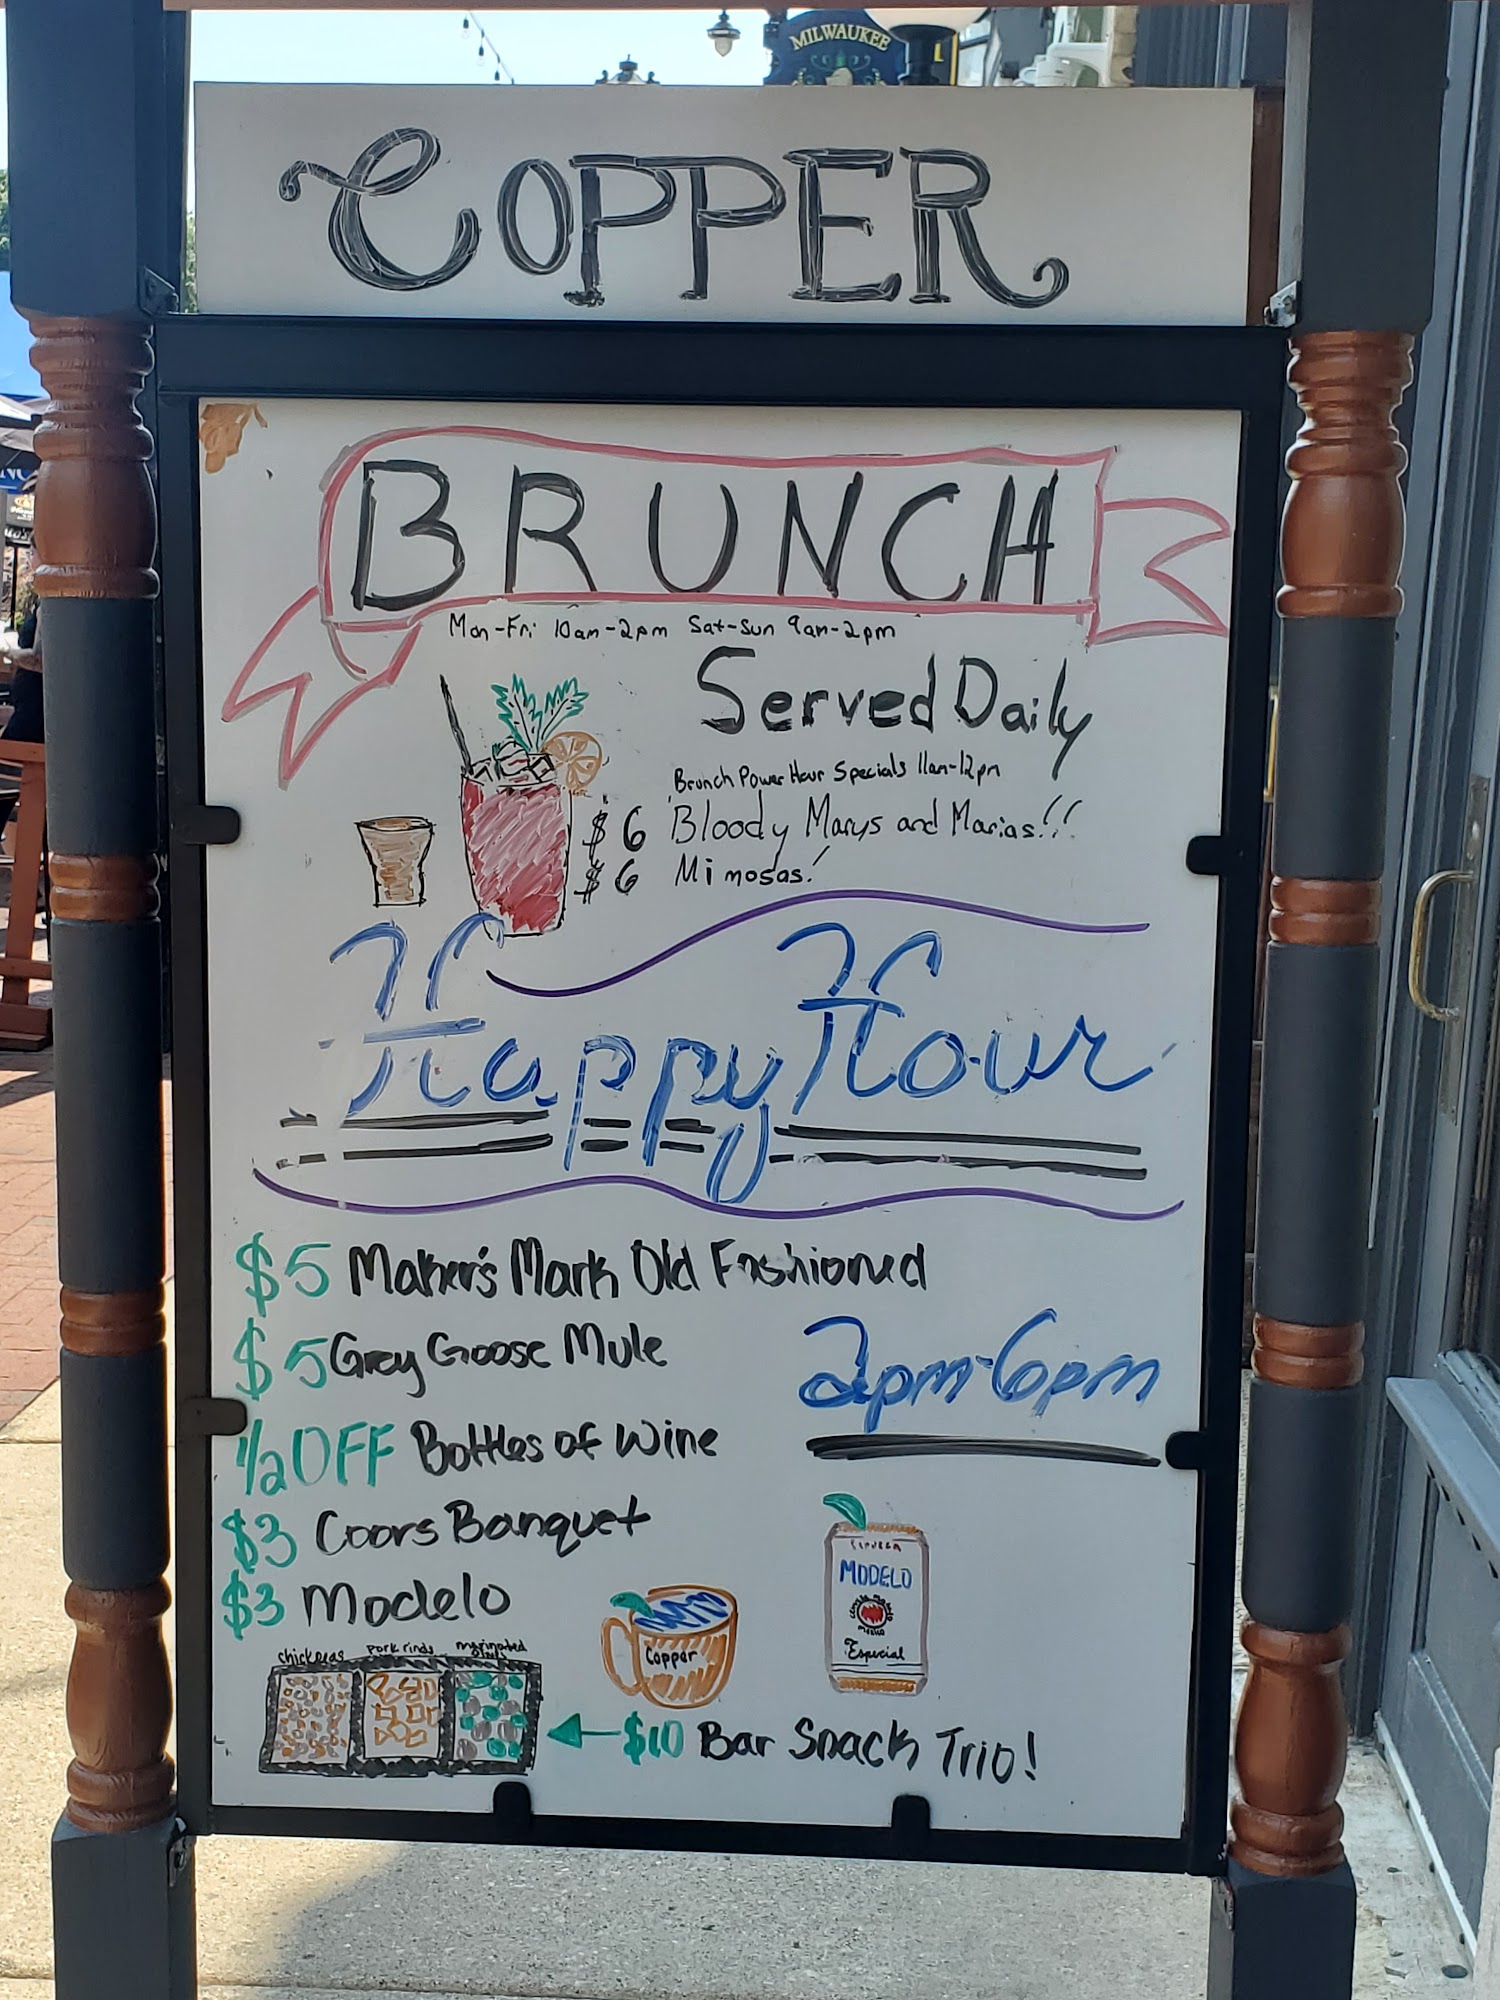 MILWAUKEE
COPPER
BRUNCH
Mon-Fri 10am-2pm Sat-Sun 9am-2pm
Served Daily
Brunch Power Hour Specials 11am-12pm
$6 Bloody Marys and Marias!!
$6 Mimosas!
Happy Hour
$5 Maker's Mark Old Fashioned
$5 Grey Goose Mule
2pm-6pm
1/2 OFF Bottles of Wine
$3 Coors Banquet
$3 Modelo
CERVEZA
MODELO
Especial
Copper
chickpeas pork rinds marinated
$10 Bar Snack Trio!